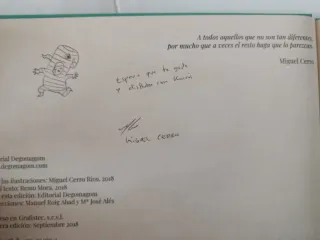 A todos aquellos que no son tan diferentes,
por mucho que a veces el resto haga que lo parezcan.
Miguel Cerro
Espero que te guste
y disfrutes con
MIGUEL CERRO
rial Degomagom
degomagom.com
las ilustraciones: Miguel Cerro Rico, 2018
texto: Bruno Mora, 2018
esta edición: Editorial Degomagom
ecciones: Manuel Roig Abad y Mª José Alés
eso en Grafistec, s.c.v.l.
era edición: Septiembre 2018